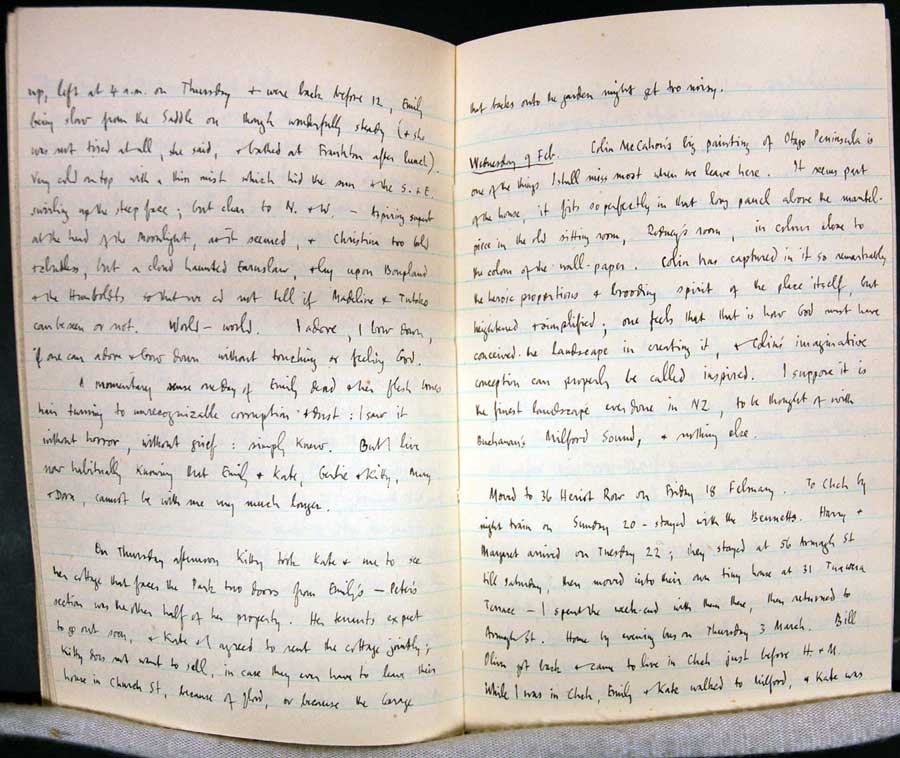 up, left at 4 a.m. on Thursday & were back before 12, Emily
being slow from the Saddle on though wonderfully steady (& she
was not tired at all, she said, & bathed at Frankton after lunch).
Very cold on top with a thin mist which hid the sun & the S. & E.
swirling up the steep face; but clear to N. & W. – Aspiring superb
at the head of the Moonlight, as it seemed, & Christina too bold
& cloudless, but a cloud haunted Earnslaw, & lay upon Bonpland
& the Humboldts so that we cd not tell if Madeline & Tutoko
can be seen or not. World – world. I adore, I bow down,
if one can adore & bow down without touching or feeling God.
A momentary sense one day of Emily dead & her flesh bones
hair turning to unrecognizable corruption & dust: I saw it
without horror, without grief: simply knew. But I live
now habitually knowing that Emily & Kate, Gertie & Kitty, Mary
& Dora, cannot be with me very much longer.
On Thursday afternoon Kitty took Kate & me to see
her cottage that faces the Park two doors from Emily's – Peter's
section was the other half of her property. Her tenants expect
to go out soon, & Kate & I agreed to rent the cottage jointly;
Kitty does not want to sell, in case they ever have to leave their
house in Church St, because of flood, or because the Garage
that backs onto the garden might get too noisy.
Wednesday 9 Feb. Colin McCahon's big painting of Otago Peninsula is
one of the things I shall miss most when we leave here. It seems part
of the house, it fits so perfectly in that long panel above the mantel-
piece in the old sitting room, Rodney's room, in colour close to
the colour of the wall-paper. Colin has captured in it so remarkably
the heroic proportions & brooding spirit of the place itself, but
heightened & simplified; one feels that that is how God must have
conceived the landscape in creating it, & Colin's imaginative
conception can properly be called inspired. I suppose it is
the finest landscape ever done in NZ, to be thought of with
Buchanan's Milford Sound, & nothing else.
Moved to 36 Heriot Row on Friday 18 February. To Chch by
night train on Sunday 20 – stayed with the Bennetts. Harry &
Margaret arrived on Tuesday 22; they stayed at 56 Armagh St
till Saturday, then moved into their own tiny house at 31 Tarawera
Terrace – I spent the week-end with them there, then returned to
Armagh St. Home by evening bus on Thursday 3 March. Bill
Oliver got back & came to live in Chch just before H & M.
While I was in Chch, Emily & Kate walked to Milford, & Kate was